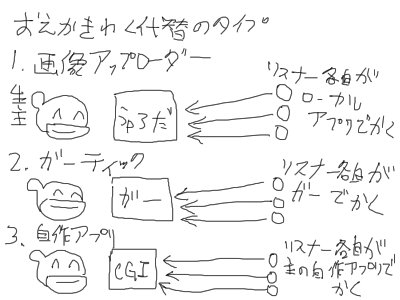 おえかきわく代替のタイプ
1. 画像アップローダー
生主
うpろだ
リスナー各自が
ローカル
アプリでかく
2. ガーティック
ガー
リスナー各自が
ガーでかく
3. 自作アプリ
CGI
リスナー各自が
主の自作アプリで
かく